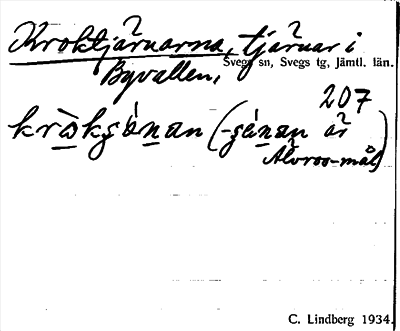 Kroktjärnarna, tjärnar i
Svegs sn, Svegs tg, Jämtl. län.
Byvallen,
207
(
är
Älvros-mål)
C. Lindberg 1934.